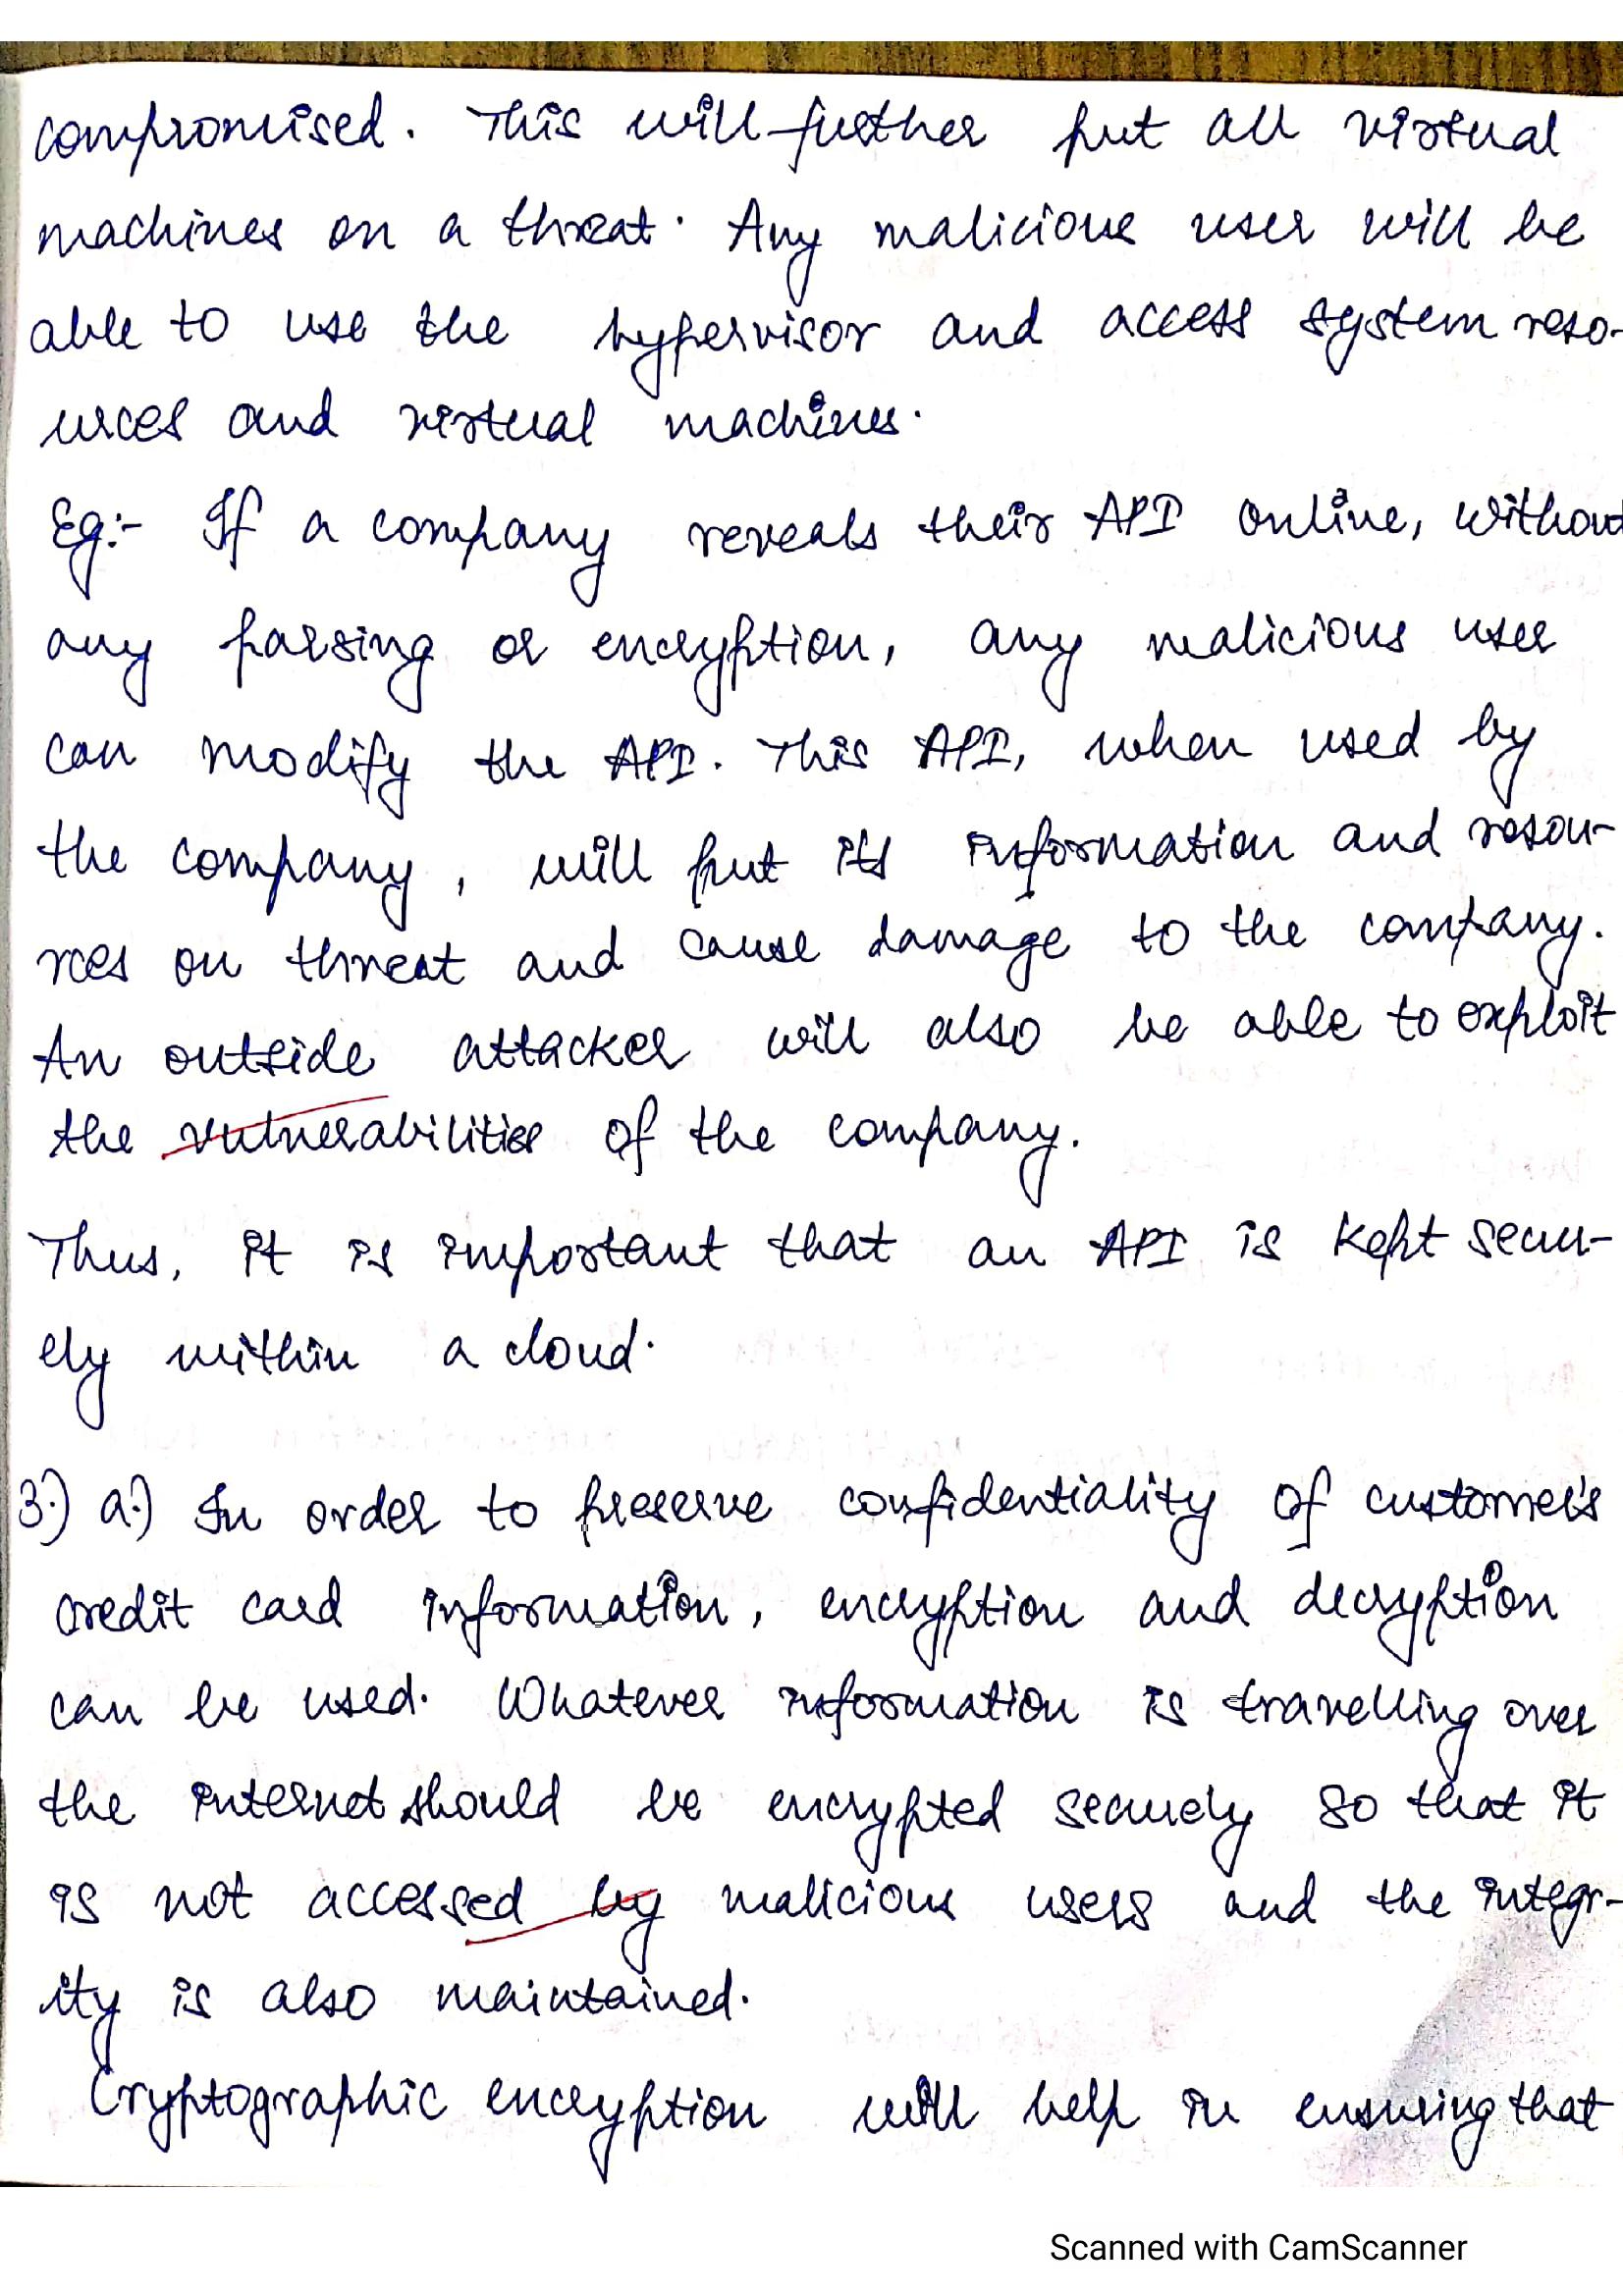 compromised. This will further put all virtual
machines on a threat. Any malicious user will be
able to use the hypervisor and access system reso-
urces and virtual machines.
Eg:- If a company reveals their API online, without
any parsing or encryption, any malicious user
can modify the API. This API, when used by
the company, will put its information and resou-
rces on threat and cause damage to the company.
An outside attacker will also be able to exploit
the vulnerabilities of the company.
Thus, it is important that an API is kept secur-
ely within a cloud.
3.) a.) In order to preserve confidentiality of customer's
credit card information, encryption and decryption
can be used. Whatever information is travelling over
the internet should be encrypted securely so that it
is not accessed by malicious users and the integr-
ity is also maintained.
Cryptographic encryption will help in ensuring that
Scanned with CamScanner